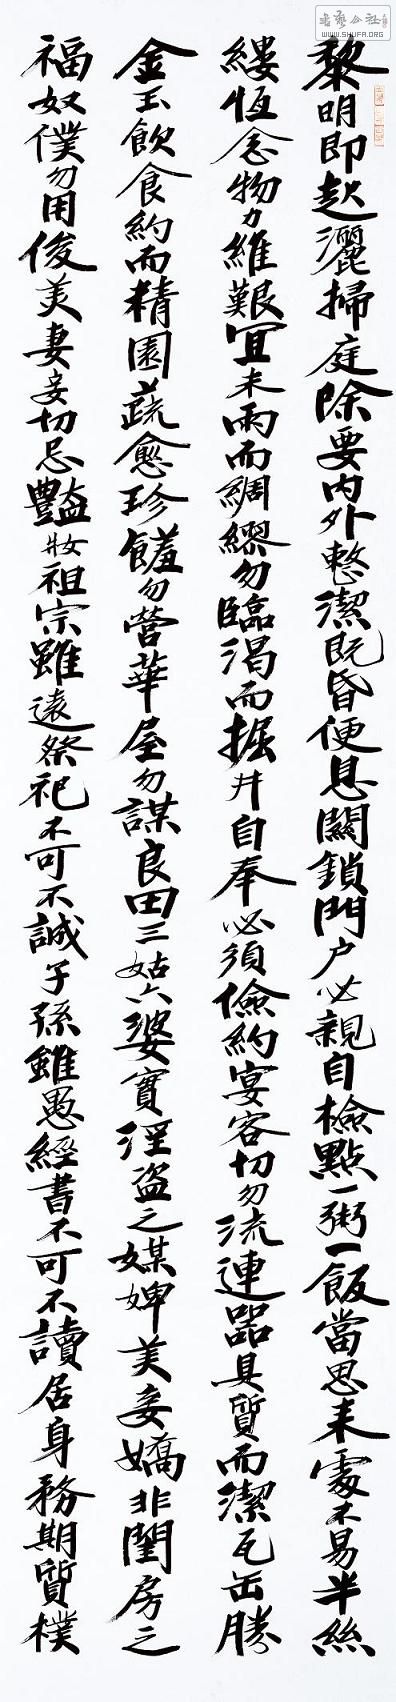 書藝公社
WWW.SHUFA.ORG
黎明即起灑掃庭除要内外整潔既昏便息關鎖門户必親自檢點一粥一飯當思来處不易半絲
縷恆念物力維艱宜未雨而綢繆勿臨渴而掘井自奉必須儉約宴客切勿流連器具質而潔瓦缶勝
金玉飲食約而精園蔬愈珍饈勿營華屋勿謀良田三姑六婆實淫盗之媒婢美妾嬌非閨房之
福奴僕勿用俊美妻妾切忌豔妝祖宗雖遠祭祀不可不誠子孫雖愚經書不可不讀居身務期質樸